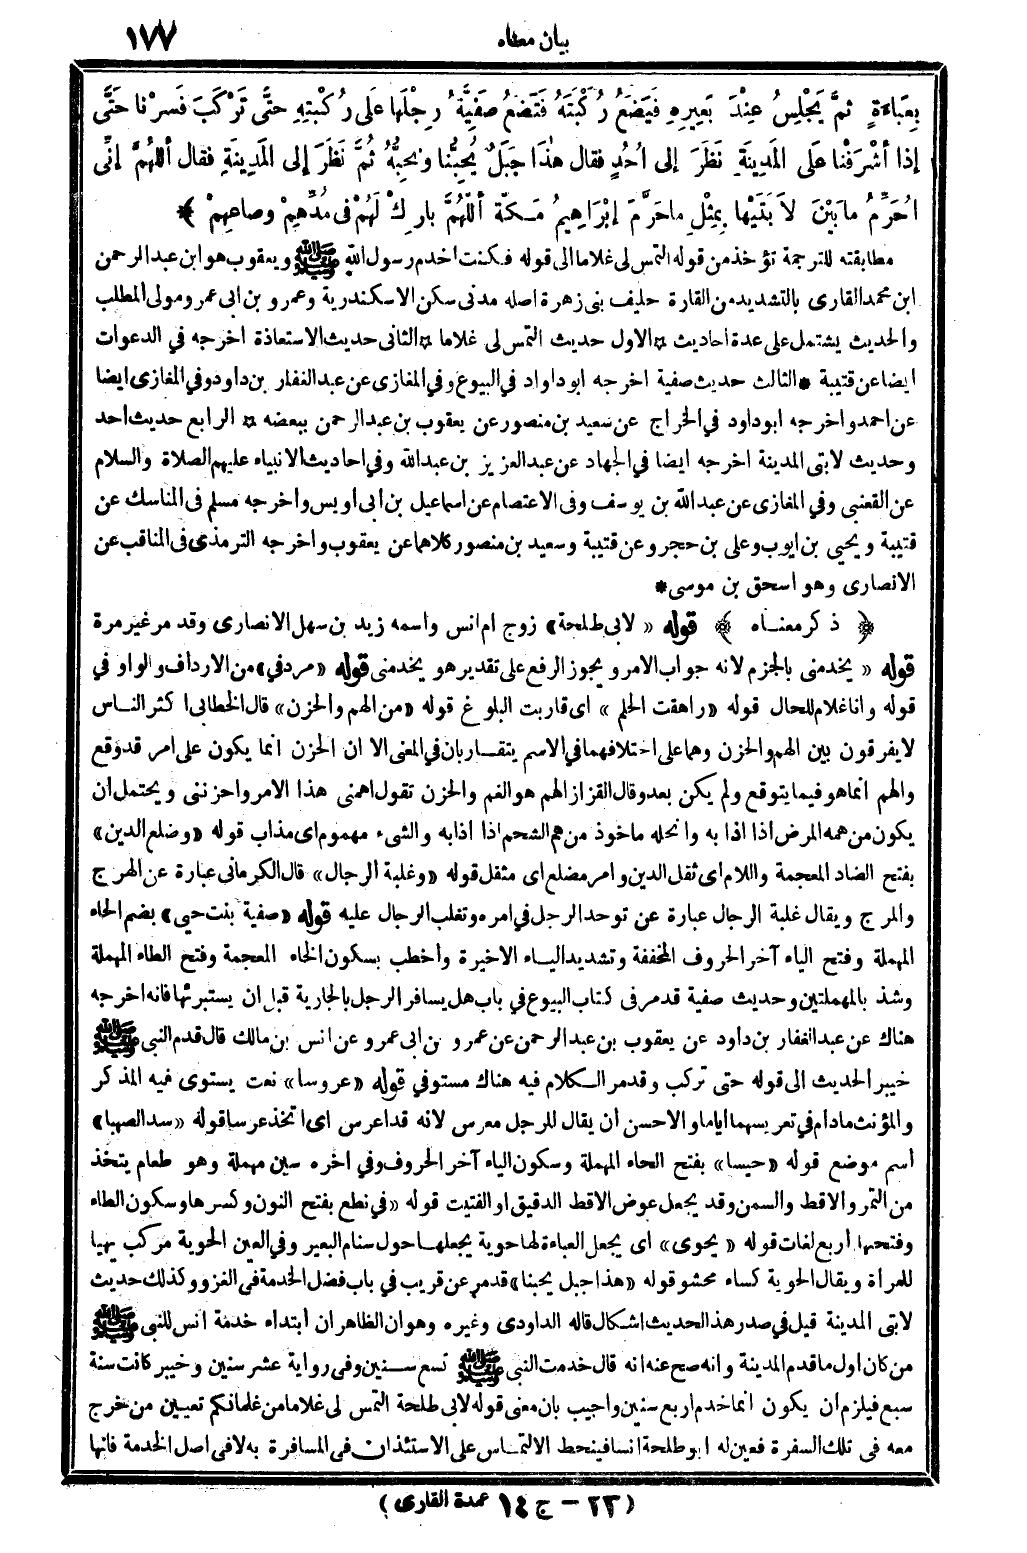 ١٧٧
بيان معناه
بِعَبَاءَةٍ ثمَّ يَجْلِسُ عِنْدَ بَعِيرِهِ فَيَضَعُ رُكْبَتَهُ فَتَضَعُ صَفِيَّةُ رِجْلَها عَلَى رُكْبتِهِ حتَّى تَرْكَبَ فَسِرْنا حَتَّى
إذا أشْرَفْنا عَلَى المَدِينَةِ نَظَرَ إلى اُحُدٍ فقال هٰذا جَبَلٌ يُحِبُّنا ونُحِبُّهُ ثُمَّ نَظَرَ إلى المَدِينَةِ فقال أللهُمَّ إنِّى
اُحَرِّمُ ما بَيْنَ لاَ بَتَيْها بِمِثْلِ ما حَرَّمَ إبْرَاهِيمُ مَكّةَ أللّهُمَّ بارِكْ لَهُمْ فى مُدِّهِمْ وصاعِهِمْ ﴾
مطابقته للترجمة تؤخذ من قوله التمس لى غلاما الى قوله فكنت اخدم رسول الله ﷺ ويعقوب هو ابن عبد الرحمن
ابن محمد القارى بالتشديد من القارة حليف بنى زهرة اصله مدنى سكن الاسكندرية وعمرو بن ابى عمرو مولى المطلب
والحديث يشتمل على عدة احاديث * الاول حديث التمس لى غلاما * الثانى حديث الاستعاذة اخرجه في الدعوات
ايضا عن قتيبة * الثالث حديث صفية اخرجه ابو داواد في البيوع وفي المغازى عن عبد الغفار بن داود وفي المغازى ايضا
عن احمد واخرجه ابو داود في الخراج عن سعيد بن منصور عن يعقوب بن عبد الرحمن ببعضه * الرابع حديث احد
وحديث لابتى المدينة اخرجه ايضا في الجهاد عن عبد العزيز بن عبد الله وفي احاديث الانبياء عليهم الصلاة والسلام
عن القعنبى وفي المغازى عن عبد الله بن يوسف وفى الاعتصام عن اسماعيل بن ابى أويس وأخرجه مسلم فى المناسك عن
قتيبة ويحيى بن ايوب وعلى بن حجر وعن قتيبة وسعيد بن منصور كلاهما عن يعقوب واخرجه الترمذى فى المناقب عن
الانصارى وهو اسحق بن موسى *
﴿ ذكر معناه ﴾ قوله « لابى طلحة » زوج ام انس واسمه زيد بن سهل الانصارى وقد مر غير مرة
قوله « يخدمنى بالجزم لانه جواب الامر ويجوز الرفع على تقدير هو يخدمنى قوله «مردفي» من الارداف والواو في
قوله وانا غلام للحال قوله «راهقت الحلم » اى قاربت البلوغ قوله «من الهم والحزن» قال الخطابى اكثر الناس
لا يفرقون بين الهم والحزن وهما على اختلافهما في الاسم يتقاربان في المعنى الا ان الحزن انما يكون على امر قد وقع
والهم انما هو فيما يتوقع ولم يكن بعد وقال القزاز الهم هو الغم والحزن تقول اهمنى هذا الامر واحزننى ويحتمل ان
يكون من همه المرض اذا اذابه وانحله ماخوذ من هم الشحم اذا اذابه والشىء مهموم اى مذاب قوله «وضلع الدين»
بفتح الضاد المعجمة واللام اى ثقل الدين وامر مضلع اى مثقل قوله «وغلبة الرجال» قال الكرمانى عبارة عن الهرج
والمرج ويقال غلبة الرجال عبارة عن توحد الرجل في امره وتغلب الرجال عليه قوله «صفية بنت حيى» بضم الحاء
المهملة وفتح الياء آخر الحروف المخففة وتشديد الياء الاخيرة وأخطب بسكون الخاء المعجمة وفتح الطاء المهملة
وشذ بالمهملتين وحديث صفية قد مر فى كتاب البيوع في باب هل يسافر الرجل بالجارية قبل ان يستبرئها فانه اخرجه
هناك عن عبد الغفار بن داود عن يعقوب بن عبد الرحمن عن عمرو بن ابى عمرو عن انس بن مالك قال قدم النبى ﷺ
خيبر الحديث الى قوله حتى تركب وقد مر الكلام فيه هناك مستوفي قوله «عروسا» نعت يستوى فيه المذكر
والمؤنث مادام في تعريسهما اياما والاحسن أن يقال للرجل معرس لانه قد اعرس اى اتخذ عرسا قوله «سد الصهبا»
أسم موضع قوله «حيسا» بفتح الحاء المهملة وسكون الياء آخر الحروف وفي اخره سين مهملة وهو طعام يتخذ
من التمر والاقط والسمن وقد يجعل عوض الاقط الدقيق او الفتيت قوله «في نطع بفتح النون وكسرها وسكون الطاء
وفتحها أربع لغات قوله «يحوى» اى يجعل العباءة لها حوية يجعلها حول سنام البعير وفي العين الحوية مركب يهيا
للمرأة ويقال الحوية كساء محشو قوله «هذا جبل يحبنا» قد مر عن قريب في باب فضل الخدمة فى الغزو وكذلك حديث
لابتى المدينة قيل في صدر هذا الحديث اشكال قاله الداودى وغيره وهو ان الظاهر ان أبتداء خدمة انس للنبى ﷺ
من كان اول ما قدم المدينة وانه صح عنه انه قال خدمت النبى ﷺ تسع سنين وفى رواية عشر سنين وخيبر كانت سنة
سبع فيلزم ان يكون انما خدم اربع سنين واجيب بان معنى قوله لابى طلحة التمس لى غلاما من غلمانكم تعيين من خرج
معه فى تلك السفرة فعين له ابو طلحة انسا فينحط الالتماس على الاستئذان فى المسافرة به لا فى اصل الخدمة فانها
(٢٣ – ج ١٤ عمدة القارى)